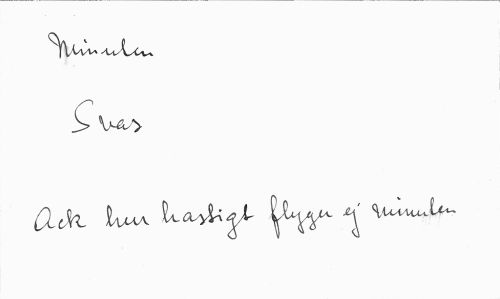 Minuten
Svar
Ack hur hastigt flyger ej minuten